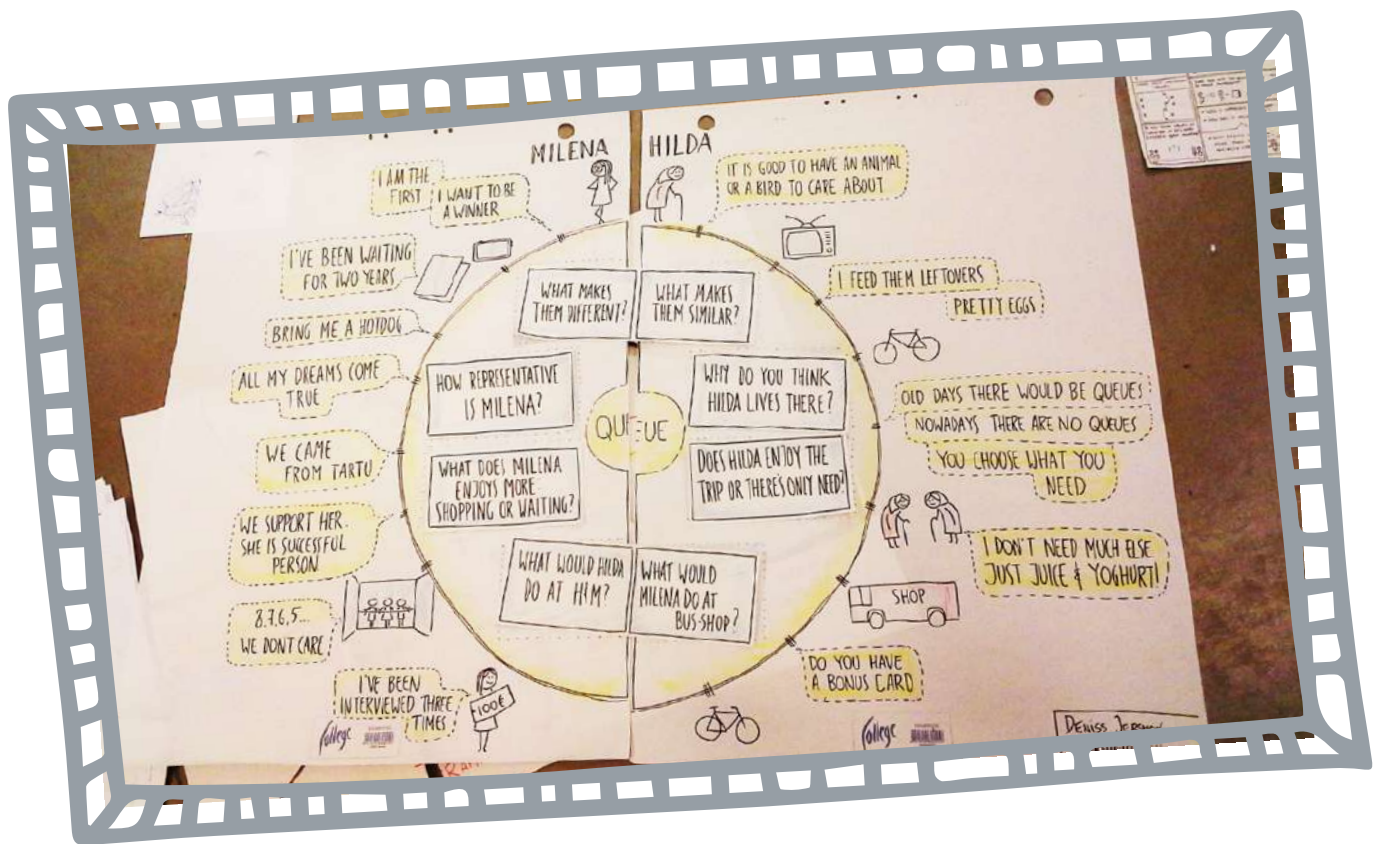 MILENA
HILDA
I AM THE
FIRST
I WANT TO BE
A WINNER
I'VE BEEN WAITING
FOR TWO YEARS
BRING ME A HOTDOG
ALL MY DREAMS COME
TRUE
WE CAME
FROM TARTU
WE SUPPORT HER.
SHE IS SUCCESSFUL
PERSON
8.7.6.5...
WE DONT CARE
I'VE BEEN
INTERVIEWED THREE
TIMES
100€
WHAT MAKES
THEM DIFFERENT?
WHAT MAKES
THEM SIMILAR?
HOW REPRESENTATIVE
IS MILENA?
WHY DO YOU THINK
HILDA LIVES THERE?
QUEUE
WHAT DOES MILENA
ENJOYS MORE
SHOPPING OR WAITING?
DOES HILDA ENJOY THE
TRIP OR THERE'S ONLY NEED?
WHAT WOULD HILDA
DO AT H&M?
WHAT WOULD
MILENA DO AT
BUS-SHOP?
IT IS GOOD TO HAVE AN ANIMAL
OR A BIRD TO CARE ABOUT
I FEED THEM LEFTOVERS
PRETTY EGGS
OLD DAYS THERE WOULD BE QUEUES
NOWADAYS THERE ARE NO QUEUES
YOU CHOOSE WHAT YOU
NEED
I DON'T NEED MUCH ELSE
JUST JUICE & YOGHURT!
SHOP
DO YOU HAVE
A BONUS CARD
College
College
DENISS